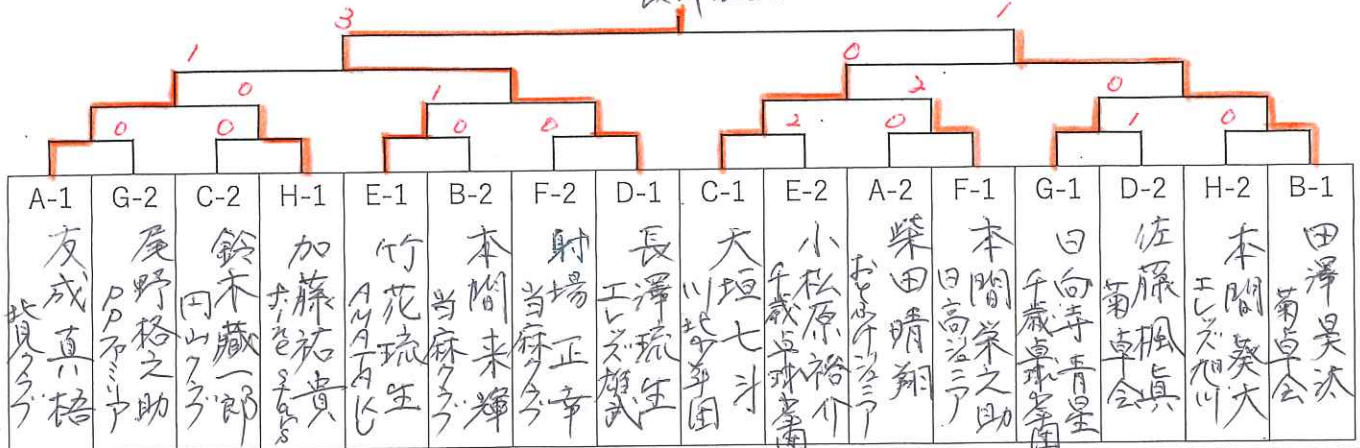 3
1
1
0
0
1
2
0
0
0
0
0
2
0
1
0
A-1
G-2
C-2
H-1
E-1
B-2
F-2
D-1
C-1
E-2
A-2
F-1
G-1
D-2
H-2
B-1
友成真梧
北見クラブ
尾野格之助
PPファミリア
鈴木藏一郎
円山クラブ
加藤祐貴
竹花琉生
本間来輝
当麻クラブ
射場正幸
当麻クラブ
長澤琉生
エレッズ雄武
大垣七斗
小松原裕介
柴田晴翔
おとふけジュニア
本間栄之助
日高ジュニア
日向寺青星
佐藤楓眞
菊卓会
本間葵大
エレッズ旭川
田澤昊汰
菊卓会